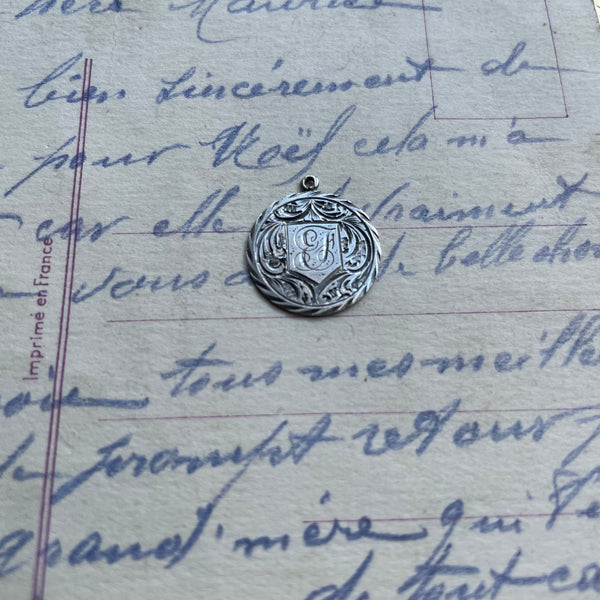 Maurice
bien sincèrement de
pour Noël cela m'a
car elle vraiment
vous de belle
tous mes meille
prompt retour
grand'mère qui
de tout
Imprimé en France
EJ